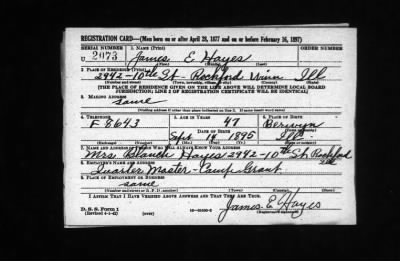 REGISTRATION CARD—(Men born on or after April 28, 1877 and on or before February 16, 1897)
SERIAL NUMBER 1. NAME (Print) ORDER NUMBER
U 2073 James E Hayes
(First) (Middle) (Last)
2. PLACE OF RESIDENCE (Print)
2942-10th St. Rockford Winn Ill
(Number and street) (Town, township, village, or city) (County) (State)
[THE PLACE OF RESIDENCE GIVEN ON THE LINE ABOVE WILL DETERMINE LOCAL BOARD
JURISDICTION; LINE 2 OF REGISTRATION CERTIFICATE WILL BE IDENTICAL]
3. MAILING ADDRESS
same
[Mailing address if other than place indicated on line 2. If same insert word same]
4. TELEPHONE 5. AGE IN YEARS 6. PLACE OF BIRTH
F 8643 47 Berwyn
DATE OF BIRTH
Sept 14 1895 Ill.
(Exchange) (Number) (Mo.) (Day) (Yr.) (State or country)
7. NAME AND ADDRESS OF PERSON WHO WILL ALWAYS KNOW YOUR ADDRESS
Mrs Blanch Hayes 2942-10th St. Rockford
8. EMPLOYER'S NAME AND ADDRESS
Quarter Master-Camp Grant
9. PLACE OF EMPLOYMENT OR BUSINESS
same
(Number and street or R. F. D. number) (Town) (County) (State)
I AFFIRM THAT I HAVE VERIFIED ABOVE ANSWERS AND THAT THEY ARE TRUE.
D. S. S. Form 1
(Revised 4-1-42) (over) James E Hayes
(Registrant's signature)